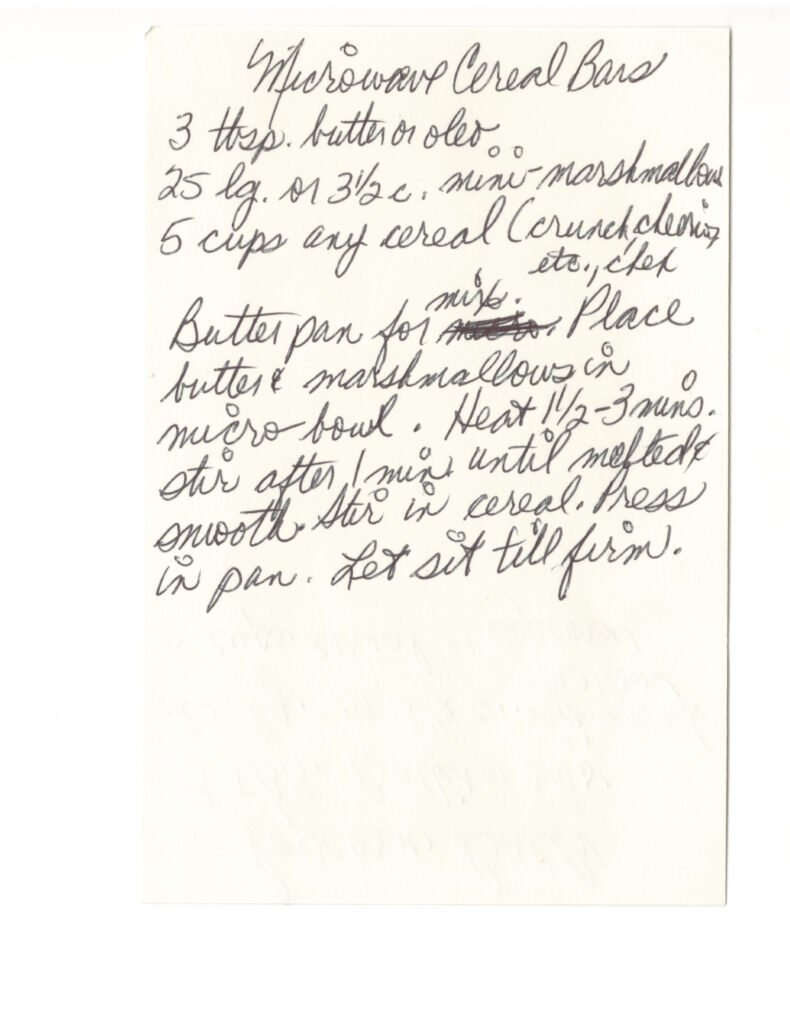 Microwave Cereal Bars
3 tbsp. butter or oleo
25 lg. or 3 1/2 c. mini-marshmallows
5 cups any cereal (crunch, cheerios,
etc., chex
mix.
Butter pan for. Place
butter & marshmallows in
micro bowl. Heat 1 1/2-3 mins.
stir after 1 min. until melted &
smooth. Stir in cereal. Press
in pan. Let sit till firm.